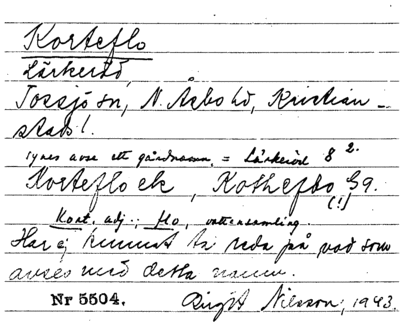 Korteflo
Lärkeröd,
Tossjö sn, N. Åsbo hd, Kristian-
stads l.
synes avse ett gårdnamn, = Lärkeröd 8 2.
Korteflock, Kotheflo Gg.
(!)
Kort, adj.; flo, vattensamling.
Har ej kunnat ta reda på vad som
avses med detta namn.
Nr 5504. Birgit Nilsson, 1943.